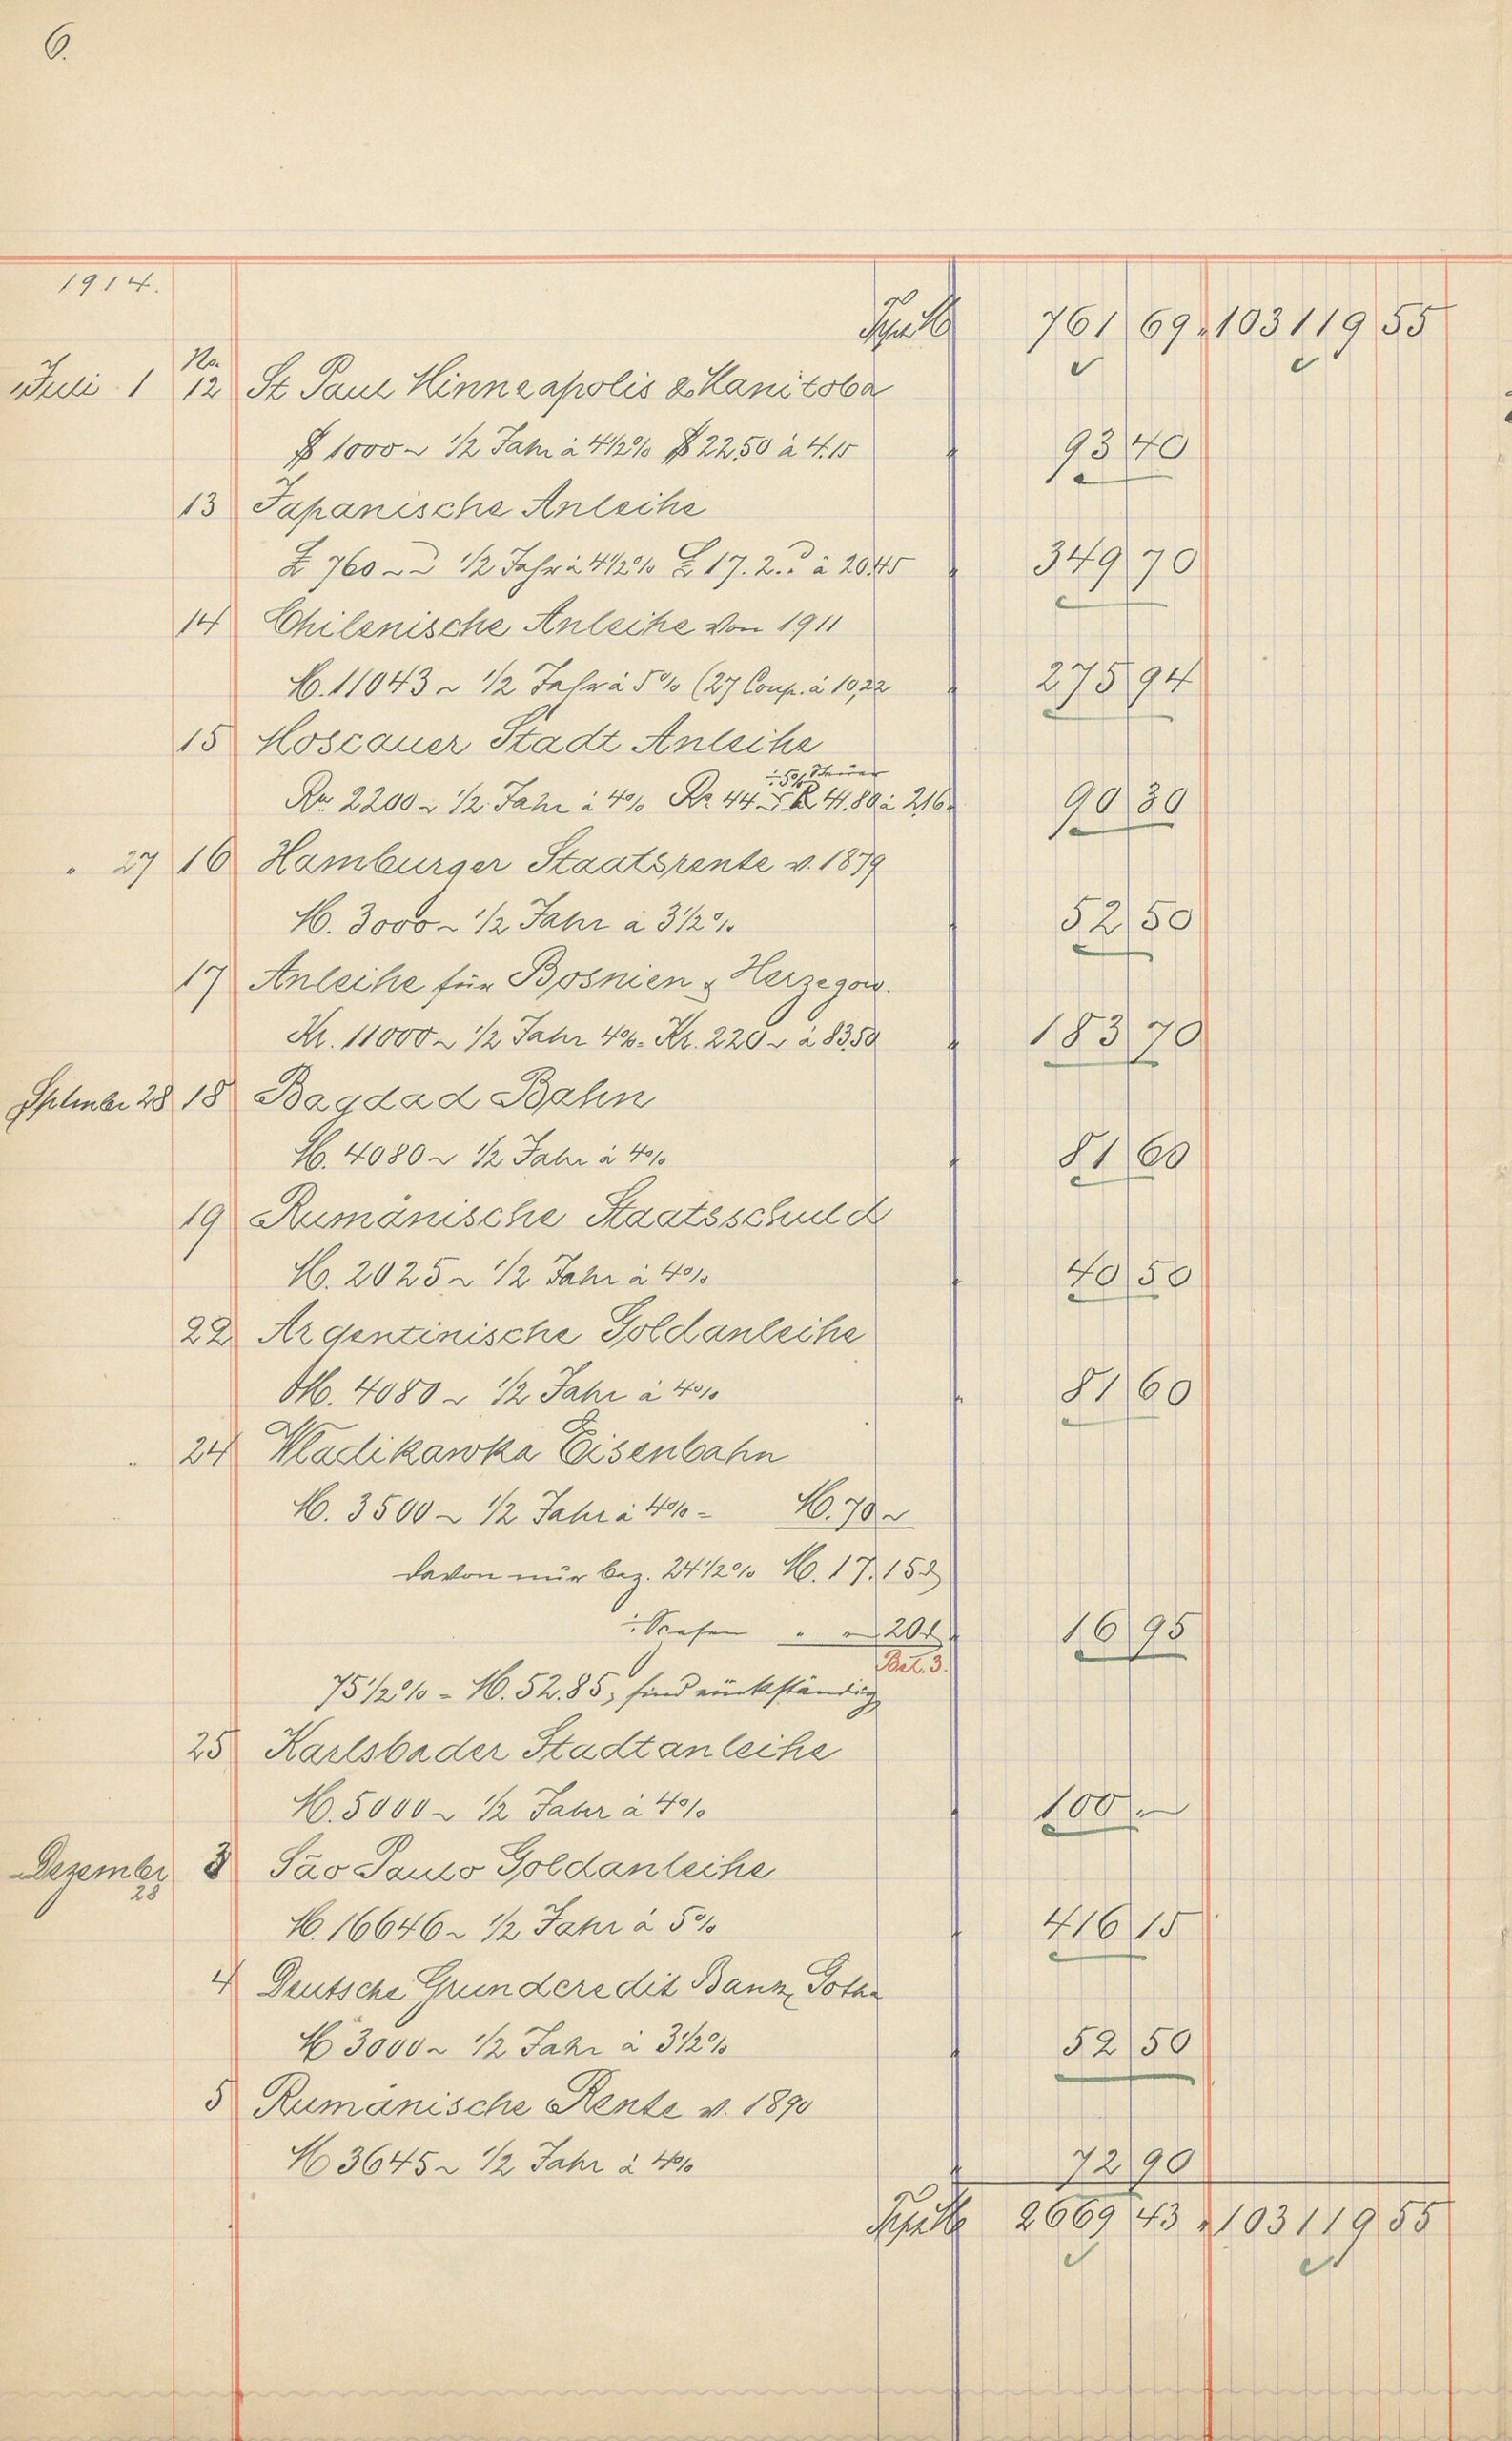 6.
1914.
761 69 103119 55
Juli 1 No. 12 St Paul Minneapolis & Manitoba
$ 1000 ~ 1/2 Jahr à 4 1/2 % $ 22.50 à 4.15 93 40
13 Japanische Anleihe
£ 760 ~ ~ 1/2 Jahr à 4 1/2 % £ 17. 2. à 20.45 349 70
14 Chilenische Anleihe von 1911
M. 11043 ~ 1/2 Jahr à 5% (27 Coup. à 10,22 275 94
15 Moscauer Stadt Anleihe
÷ 5% Steuer
Rr. 2200 ~ 1/2 Jahr à 4% Rr. 44 R 41.80 à 216 90 30
" 27 16 Hamburger Staatsrente v. 1879
M. 3000 ~ 1/2 Jahr à 3 1/2 % 52 50
17 Anleihe für Bosnien & Herzegow.
Kr. 11000 ~ 1/2 Jahr 4% = Kr. 220 ~ à 83.50 183 70
September 28 18 Bagdad Bahn
M. 4080 ~ 1/2 Jahr à 4% 81 60
19 Rumänische Staatsschuld
M. 2025 ~ 1/2 Jahr à 4% 40 50
22 Argentinische Goldanleihe
M. 4080 ~ 1/2 Jahr à 4% 81 60
" 24 Wladikawka Eisenbahn
M. 3500 ~ 1/2 Jahr à 4% = M. 70 ~
davon nur bez. 24 1/2 % M. 17.15
÷ " 20 16 95
Bel. 3.
75 1/2 % = M. 52.85, sind rückständig
25 Karlsbader Stadtanleihe
M. 5000 ~ 1/2 Jahr à 4% 100 —
Dezember 28 3 São Paulo Goldanleihe
M. 16646 ~ 1/2 Jahr à 5% 416 15
4 Deutsche Grundcredit Bank, Gotha
M 3000 ~ 1/2 Jahr à 3 1/2 % 52 50
5 Rumänische Rente v. 1890
M 3645 ~ 1/2 Jahr à 4% 72 90
2669 43 103119 55